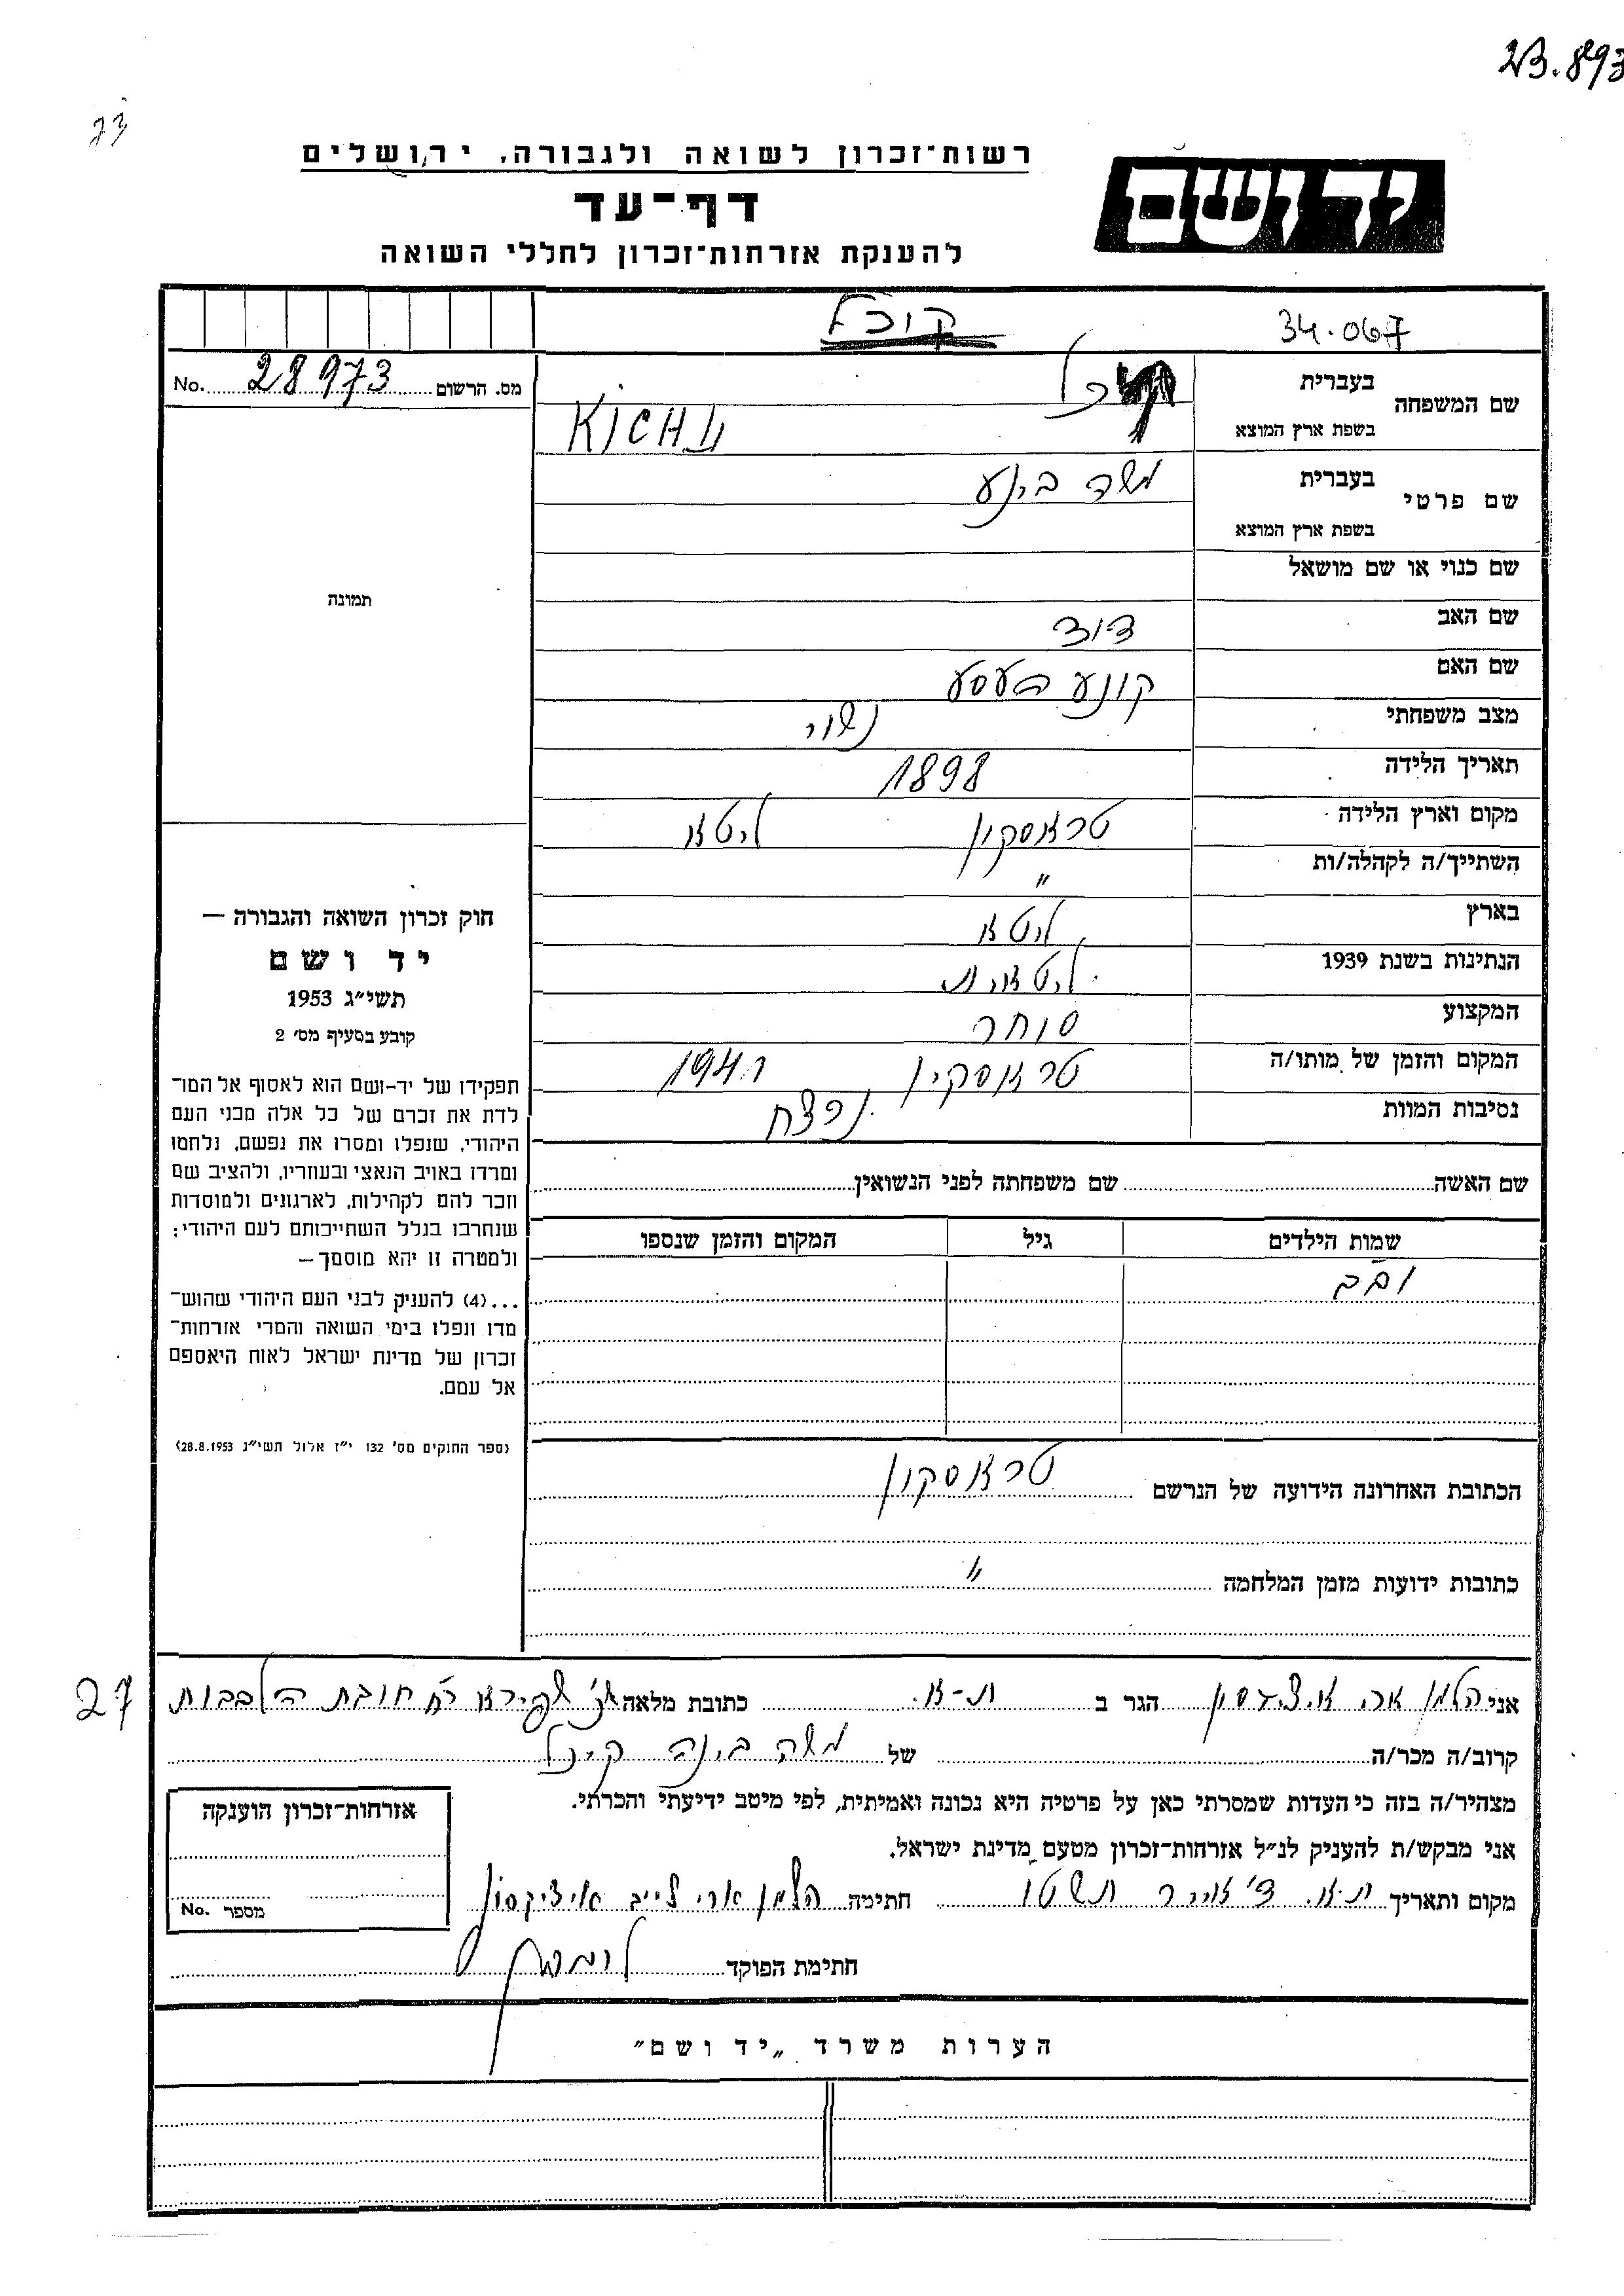 23.893
73
רשות־זכרון לשואה ולגבורה, ירושלים
יד ושם
דף־עד
להענקת אזרחות־זכרון לחללי השואה
34.067
קוכל
מס. הרשום 28973 No.
שם המשפחה
בעברית
בשפת ארץ המוצא
שם פרטי
בעברית משה בינע
בשפת ארץ המוצא
שם כנוי או שם מושאל
תמונה
שם האב דוד
שם האם קונע העסע
מצב משפחתי נשוי
תאריך הלידה 1898
מקום וארץ הלידה טראסקון ליטא
השתייך/ה לקהלה/ות "
בארץ ליטא
הנתינות בשנת 1939 ליטאית
המקצוע סוחר
המקום והזמן של מותו/ה טראסקין 1941
נסיבות המוות נרצח
חוק זכרון השואה והגבורה —
יד ושם
תשי״ג 1953
קובע בסעיף מס׳ 2
תפקידו של יד-ושם הוא לאסוף אל המו־
לדת את זכרם של כל אלה מבני העם
היהודי, שנפלו ומסרו את נפשם, נלחמו
ומרדו באויב הנאצי ובעוזריו, ולהציב שם
וזכר להם לקהילות, לארגונים ולמוסדות
שנחרבו בגלל השתייכותם לעם היהודי;
ולמטרה זו יהא מוסמך—
...(4) להעניק לבני העם היהודי שהוש־
מדו ונפלו בימי השואה והמרי אזרחות־
זכרון של מדינת ישראל לאות היאספם
אל עמם.
(ספר החוקים מס׳ 132 י״ז אלול תשי״ג 28.8.1953)
שם האשה שם משפחתה לפני הנשואין
שמות הילדים גיל המקום והזמן שנספו
הכתובת האחרונה הידועה של הנרשם טראסקון
כתובות ידועות מזמן המלחמה "
אני הלמן ארי הגר ב ת-א. כתובת מלאה שפירא רח חובת הלבבות 27
קרוב/ה מכר/ה של משה בינה קיכל
מצהיר/ה בזה כי העדות שמסרתי כאן על פרטיה היא נכונה ואמיתית, לפי מיטב ידיעתי והכרתי.
אני מבקש/ת להעניק לנ״ל אזרחות־זכרון מטעם מדינת ישראל.
מקום ותאריך ת.א. ד' אייר תשטו חתימה הלמן ארי לייב איציקסון
חתימת הפוקד
אזרחות־זכרון הוענקה
מספר No.
הערות משרד „יד ושם״